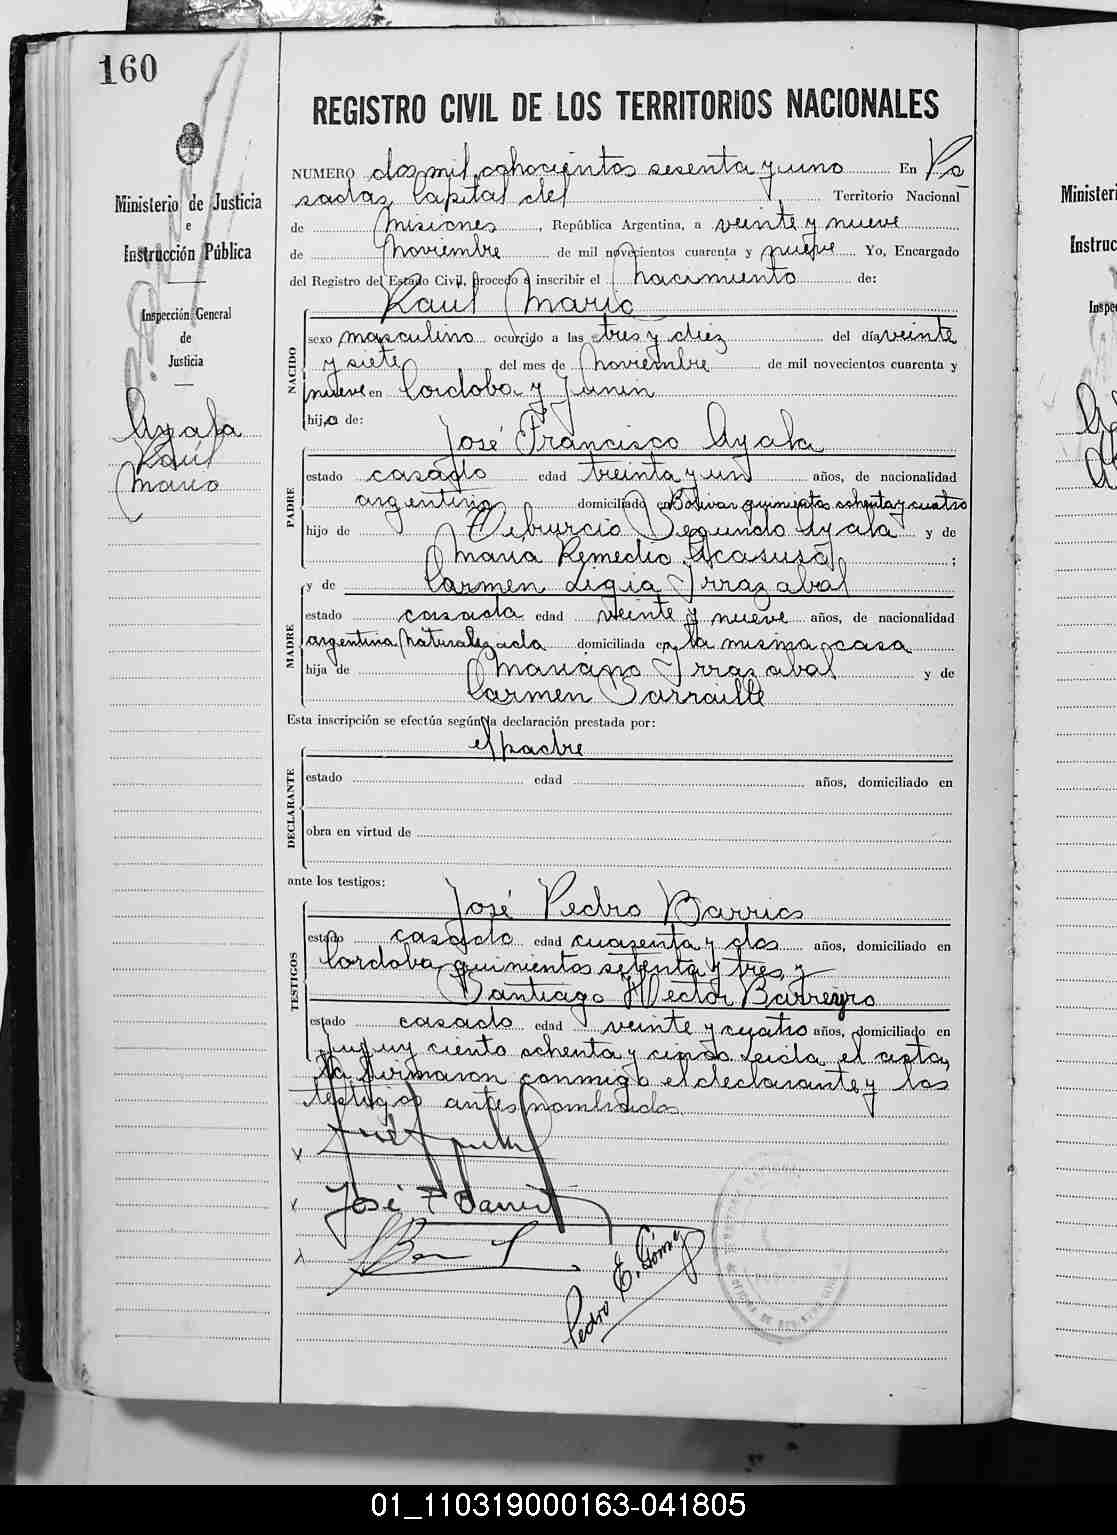 160
REGISTRO CIVIL DE LOS TERRITORIOS NACIONALES
Ministerio de Justicia
e
Instrucción Pública
Inspección General
de
Justicia
Ayala
Raúl
Mario
NUMERO dos mil ochocientos sesenta y uno En Po
sadas, Capital del Territorio Nacional
de Misiones, República Argentina, a veinte y nueve
de Noviembre de mil novecientos cuarenta y nueve Yo, Encargado
del Registro del Estado Civil, procedo a inscribir el Nacimiento de:
Raúl Mario
NACIDO
sexo masculino ocurrido a las tres y diez del día veinte
y siete del mes de Noviembre de mil novecientos cuarenta y
nueve en Cordoba y Junin
hijo de:
José Francisco Ayala
PADRE
estado casado edad treinta y un años, de nacionalidad
argentina domiciliado en Bolivar quinientos ochenta y cuatro
hijo de Tiburcio Segundo Ayala y de
Maria Remedio Acasuso;
y de Carmen Ligia Irrazabal
MADRE
estado casada edad veinte y nueve años, de nacionalidad
argentina Naturalizada domiciliada en la misma casa
hija de Mariano Irrazabal y de
Carmen Barraille
Esta inscripción se efectúa según la declaración prestada por:
el padre
DECLARANTE
estado edad años, domiciliado en
obra en virtud de
ante los testigos:
José Pedro Barrios
TESTIGOS
estado casado edad cuarenta y dos años, domiciliado en
Cordoba quinientos setenta y tres, y
Santiago Hector Barreyro
estado casado edad veinte y cuatro años, domiciliado en
Jujuy ciento ochenta y cinco Leida el acta,
la firmaron conmigo el declarante y los
testigos antes nombrados
José P Barrios
Pedro E. Gómez
Ministeri
Instruc
Inspe
01_110319000163-041805